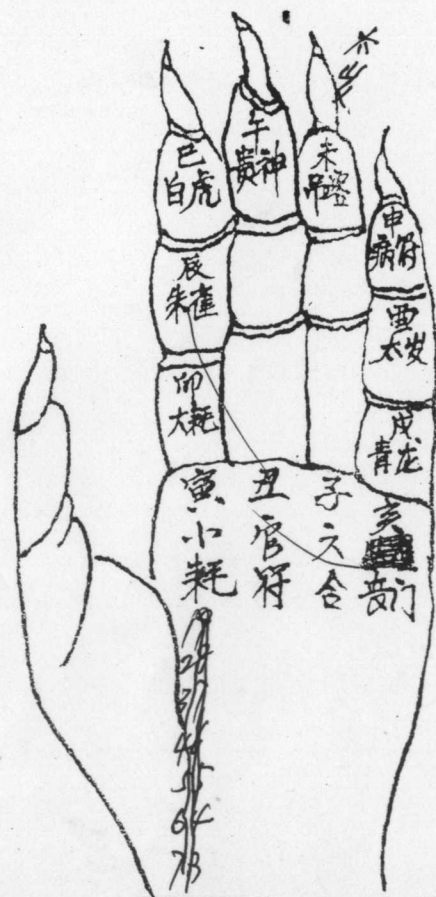 巳
白虎
午
贵神
未
吊客
申
病符
辰
朱雀
酉
太岁
卯
大耗
戌
青龙
寅
小耗
丑
官符
子
六合
亥
丧门